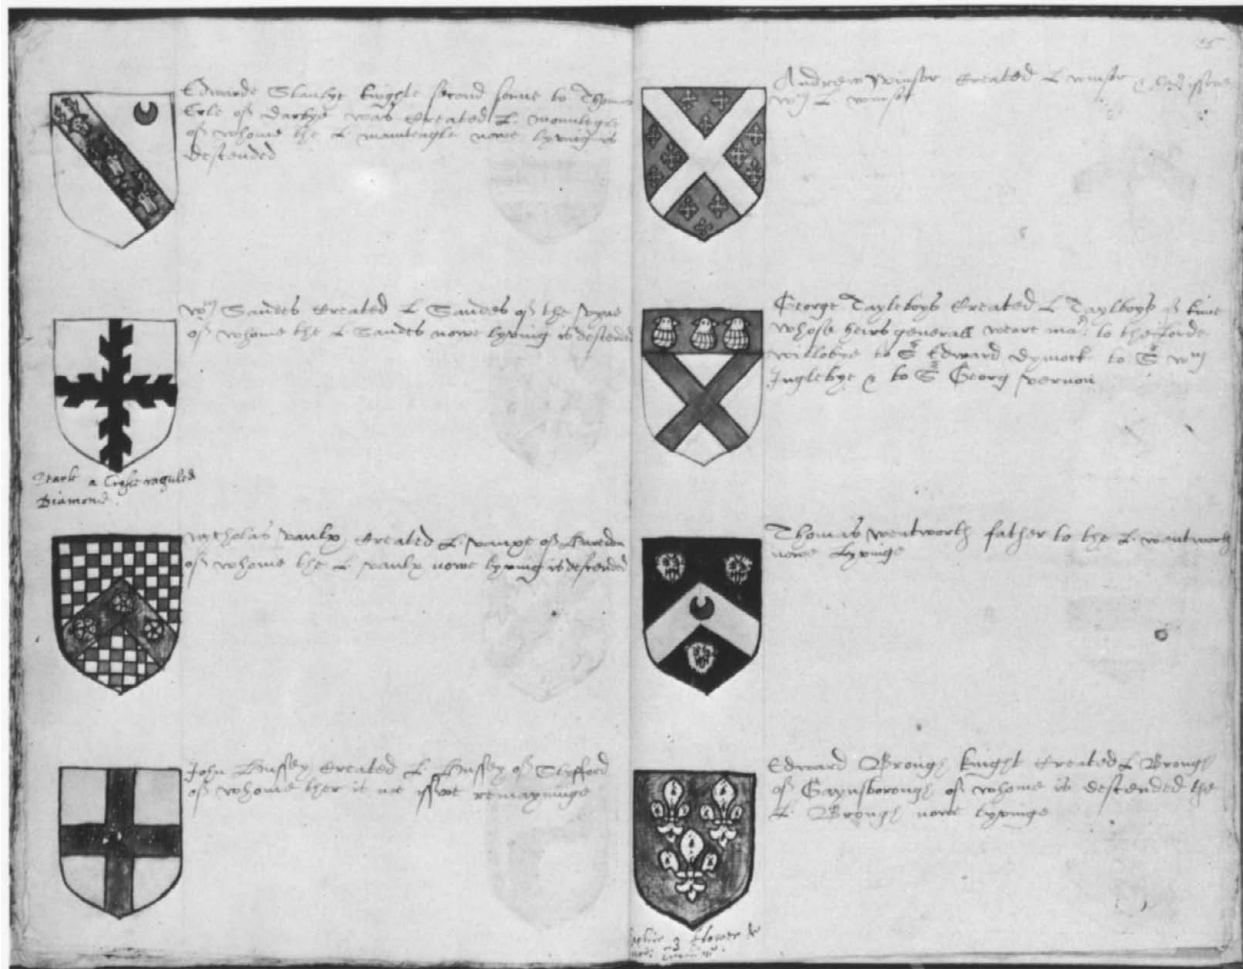 Edwarde Stanley knighte second sonne to Thomas
Erle of Darbye was Created L. mountegle
of whome the L mounteagle nowe lyving is
descended
Wm Sandes Created L Sandes of the vyne
of whome the L Sandes nowe lyving is descended
a Crosse raguled
Diamond
Nicholas vaulx Created L. vauxe of
of whome the L vaulx nowe lyving is descended
John Hussey Created L. Hussey of
of whome ther is not yssue remayninge
Andrew Winsor Created L winsor
Wm L winsor
George Taylboys Created L Taylboys of kime
whose heirs generall weare to
willobye to Sr Edward Dymock to Sr Wm
Inglebye & to Sr Georg vernon
Thomas wentworth father to the L. wentworth
nowe lyvinge
Edward Brough knight Created L Brough
of Gaynsborough of whome is descended the
L. Brough nowe lyvinge
3 flower de